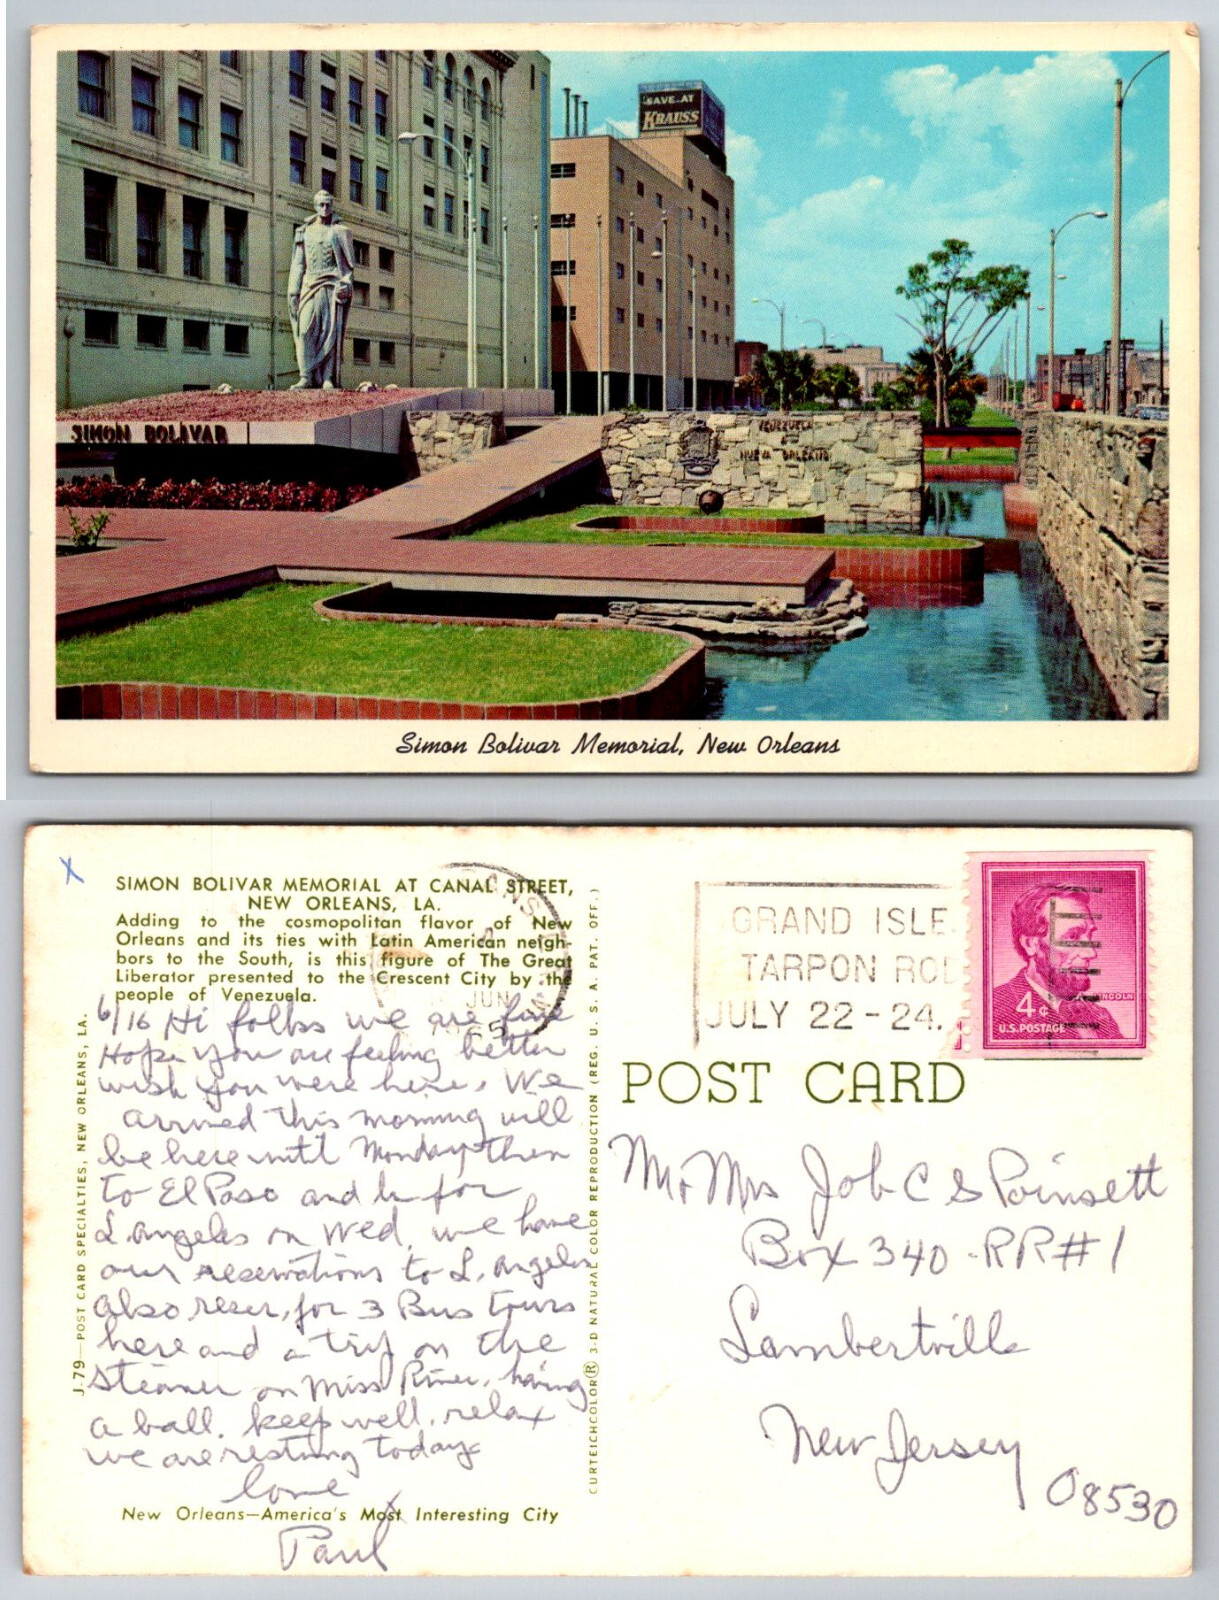 SAVE AT
KRAUSS
SIMON BOLIVAR
VENEZUELA
NUEVA ORLEANS
Simon Bolivar Memorial, New Orleans
X
SIMON BOLIVAR MEMORIAL AT CANAL STREET,
NEW ORLEANS, LA.
Adding to the cosmopolitan flavor of New
Orleans and its ties with Latin American neigh-
bors to the South, is this figure of The Great
Liberator presented to the Crescent City by the
people of Venezuela.
6/16 Hi folks we are fine
Hope you are feeling better
wish you were here. We
arrived this morning will
be here until Monday then
to El Paso and lv for
L. Angeles on Wed. we have
our reservations to L. Angeles
also reser. for 3 Bus tours
here and a trip on the
Steamer on Miss River. having
a ball. keep well. relax
we are resting today
love
Paul
New Orleans—America's Most Interesting City
J-79—POST CARD SPECIALTIES, NEW ORLEANS, LA.
CURTEICHCOLOR® 3-D NATURAL COLOR REPRODUCTION (REG. U. S. A. PAT. OFF.)
JUN
GRAND ISLE
TARPON ROD
JULY 22-24.
4¢
LINCOLN
U.S. POSTAGE
POST CARD
Mr Mrs Job C S Poinsett
Box 340 - RR#1
Lambertville
New Jersey
08530